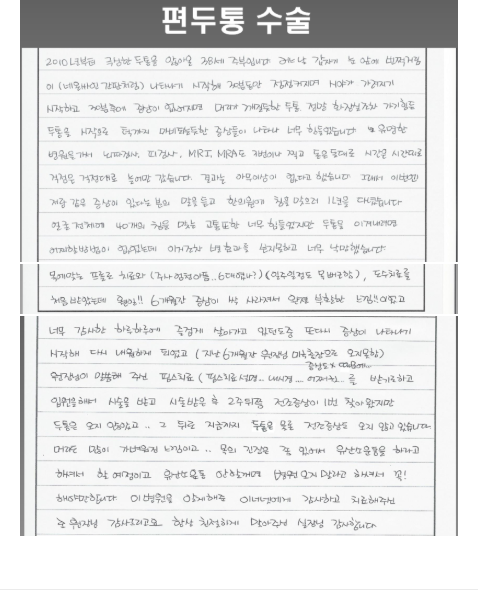 편두통 수술
2010년부터 극심한 두통을 앓아온 38세 주부입니다 어느날 갑자기 눈 앞에 번쩍거림
이 (네온싸인 간판처럼) 나타나기 시작해 점점 커지며 시야가 가려지기
시작하고 증상이 없어지면 머리가 깨질듯한 두통
두통을 시작으로 턱까지 마비되는듯한 증상들이 나타나 너무 힘들었습니다 또 유명한
병원을 가서 뇌파검사, 피검사, MRI, MRA도 찍고 돈은 돈대로 시간은 시간대로
걱정은 걱정대로 늘어만 갔습니다 결과는 아무이상이 없다고 했습니다 그래서 이번엔
저랑 같은 증상이 있다는 분의 말을 듣고 한의원에 침을 맞으러 1년을 다녔습니다
얼굴 전체에 40개의 침을 맞는 고통또한 너무 힘들었지만 두통을 이겨내려면
어쩔 방법이 없었는데 이거조차 별 효과를 보지못하고 너무 낙망했습니다
몸에맞는 프롤로 치료와 (주사 엄청아픔..6대맞나?) (일주일정도 몸배근함), 도수치료를
처음 받았는데 웬일!! 6개월간 증상이 싹 사라져서 완전 부활한 느낌!! 이었고
너무 감사한 하루하루에 즐겁게 살아가고 있던도중 또다시 증상이 나타나기
시작해 다시 내원하게 되었고 (지난 6개월간 원장님 미국출장으로 오지못함)
원장님이 말씀해 주신 펄스치료 (펄스치료설명.. 내시경.... 어쩌구..를 받기로하고
입원을해서 시술을 받고 시술받은 후 2주뒤쯤 전조증상이 1번 찾아왔지만
두통은 오지 않았고.. 그 뒤로 지금까지 두통은 물론 전조증상도 오지 않고 있습니다
머리도 많이 가벼워진 느낌이고.. 목의 긴장은 좀 있어서 유산소운동을 하라고
하셔서 할 예정이고 유산소운동 안할꺼면 병원 오지 말라고 하셔서 꼭!
해야만합니다 이병원을 알게해준 언니에게 감사하고 치료해주신
원장님 감사드리고요 항상 친절하게 맞아주신 실장님 감사합니다